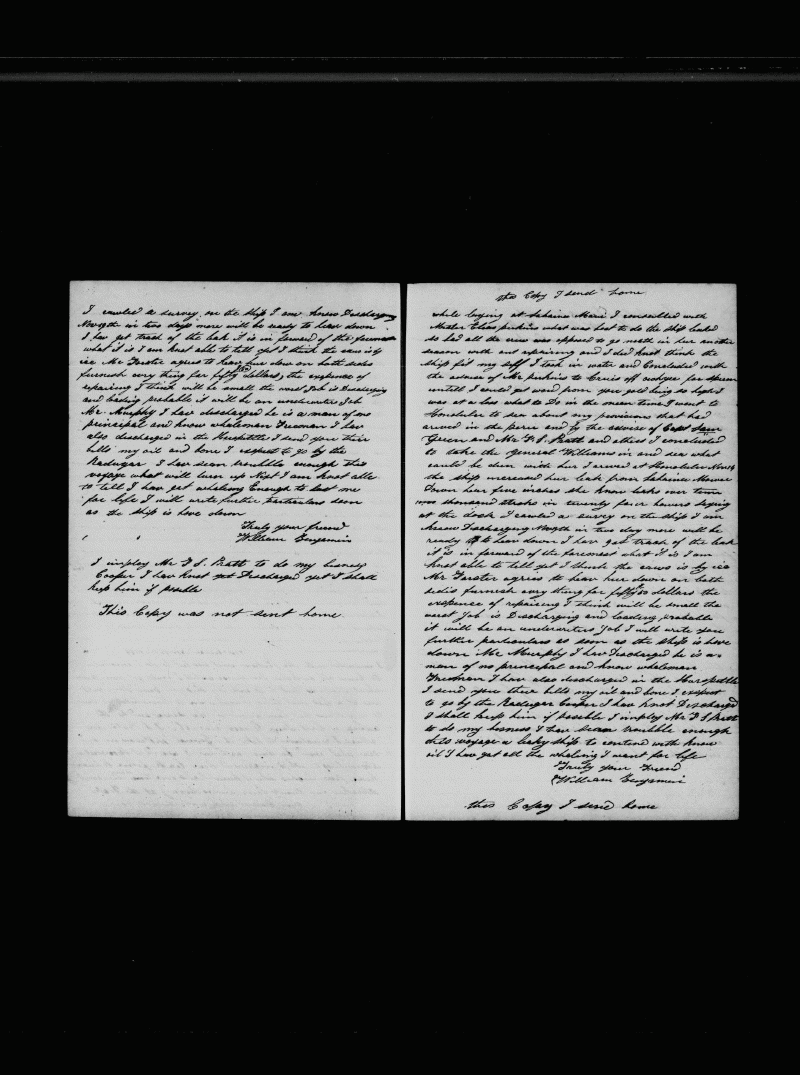 I cawled a survey on the ship I am know Discharging
Nov 19th in two days more will be ready to heav down
I hav got track of the leak it is in forward of the foremast
what it is I am knot able to tell yet I think the caws is by
ice Mr Forster agrees to heav her down on both sides
furnish evry thing for fifty dollars, the expence of
repairing I think will be small the worst Job is Discharging
and loading probable it will be an underwriters Job
Mr. Murphy I hav discharged he is a man of no
principal and know whaleman Freeman I hav
also discharged in the Hospittle I send you their
bills my oil and bone I expect to go by the
Raduger. I hav seen troubble enough this
voyage what will turn up Next I am knot able
to tell I hav got whaleing Enough to last me
for life I will write further Particulars soon
as the ship is hove down
Truly your friend
William Benjamin
I imploy Mr F S. Pratt to do my bisness
Cooper I hav knot yet Discharged yet I shall
keep him if posible
This Copy was not sent home
this Copy I send home
while laying at Lahaina Mauii I consulted with
Master Elias perkins what was best to do the ship leaked
so bad all the crew was opposed to go north in her another
season with out repairing and I did knot think the
ship fit my self I took in water and Concluded with
the advise of Mr perkins to Cruis off for sperm
untill I could get word from you not being so high I
was at a loss what to Do in the mean time I went to
Honolulu to see about my provisions that had
arived in the and by the advise of Capt Sam
Green and Mr F. S. Pratt and others I concluded
to take the General Williams in and see what
could be dun with her I arived at Honolulu Nov 14
the ship increased her leak from Lahaina
Down hear five inches she know leaks over
thousand stroks in twenty four howers laying
at the dock I cawled a survey on the ship I am
know Discharging Nov 19th in two day more will be
ready to heav down I hav got track of the leak
it is in forward of the foremast what it is I am
knot able to tell yet I think the caws is by ice
Mr Forster agrees to heav her down on both
sides furnish evry thing for fifty 50 dollars the
expence of repairing I think will be small the
worst Job is Discharging and loading, probable
it will be an underwriters Job I will write you
further particulars as soon as the ship is hove
down Mr Murphy I hav Discharged he is a
man of no principal and know whaleman
Freeman I hav also discharged in the Hurspittle
I send you their bills my oil and bone I expect
to go by the Raduger Cooper I hav knot Discharged
I shall keep him if posible I imploy Mr F S Pratt
to do my bisness I hav seen troubble enough
this voyage a leaky ship to contend with know
oil I hav got all the whaling I want for life
Truly your Friend
William Benjamin
this Copy I send home